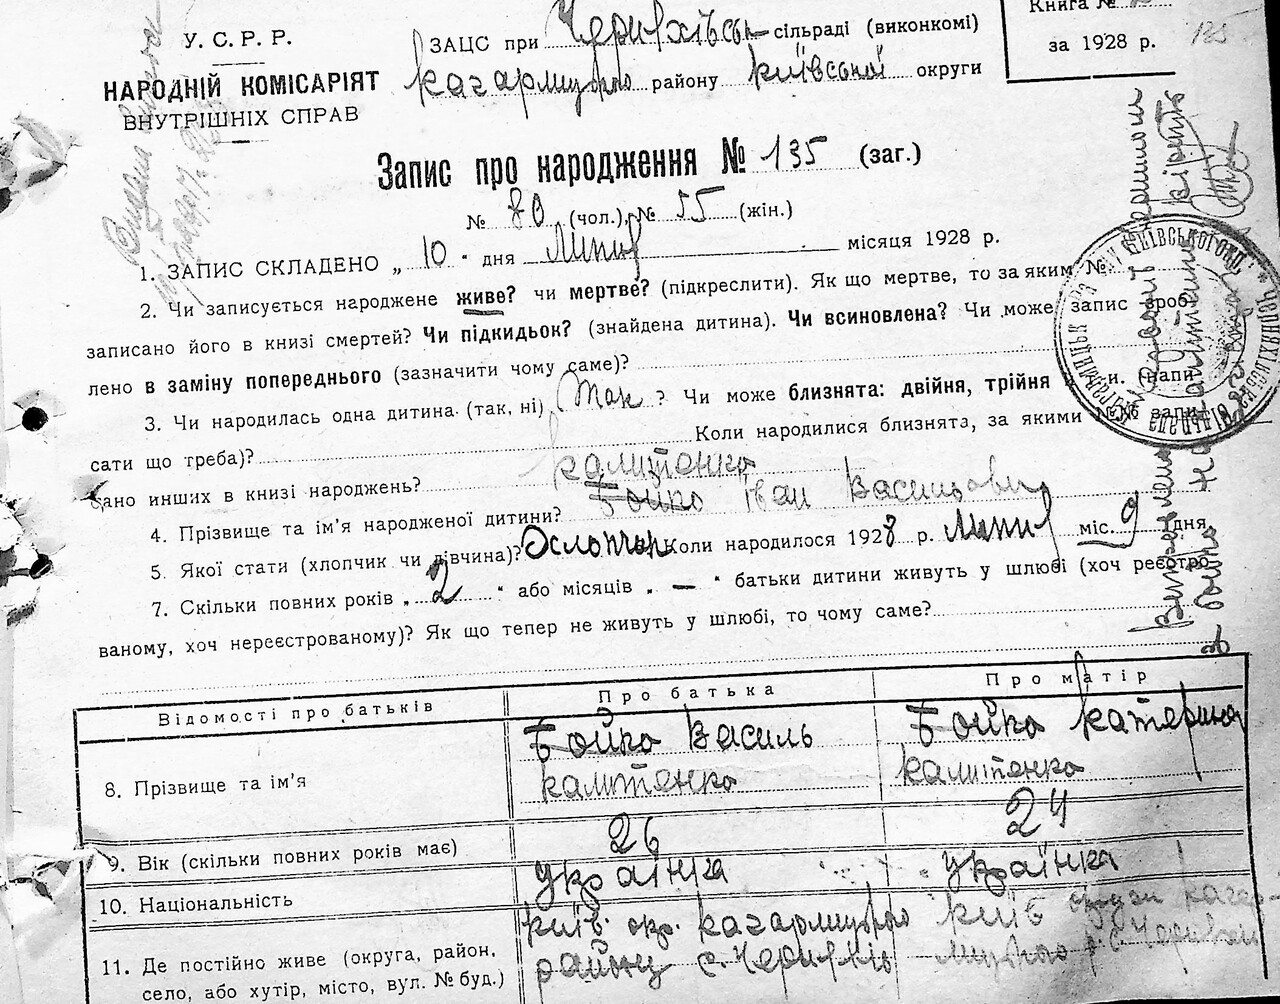 У. С. Р. Р.
НАРОДНІЙ КОМІСАРІЯТ
ВНУТРІШНІХ СПРАВ
ЗАЦС при сільраді (виконкомі)
району Київської округи
Книга №
за 1928 р.
135
Запис про народження № 135 (заг.)
№ 80 (чол.), № 55 (жін.)
1. ЗАПИС СКЛАДЕНО „ 10 " дня Липня місяця 1928 р.
2. Чи записується народжене живе? чи мертве? (підкреслити). Як що мертве, то за яким №
записано його в книзі смертей? Чи підкидьок? (знайдена дитина). Чи всиновлена? Чи може запис зроб-
лено в заміну попереднього (зазначити чому саме)?
3. Чи народилась одна дитина (так, ні) Так ? Чи може близнята: двійня, трійня и. (напи-
сати що треба)? Коли народилися близнята, за якими №№ запи-
сано инших в книзі народжень?
Калитенко
4. Прізвище та ім'я народженої дитини? Бойко Іван Васильович
5. Якої стати (хлопчик чи дівчина)? Хлопчик Коли народилося 1928 р. Липня міс. 9 дня
7. Скільки повних років „ 2 " або місяців „ — " батьки дитини живуть у шлюбі (хоч реєстро-
ваному, хоч нереєстрованому)? Як що тепер не живуть у шлюбі, то чому саме?
Відомості про батьків Про батька Про матір
8. Прізвище та ім'я Бойко Василь Бойко Катерина
Калитенко Калитенко
9. Вік (скільки повних років має) 26 24
10. Національність українка українка
11. Де постійно живе (округа, район, Київ. окр.
село, або хутір, місто, вул. № буд.) району с.